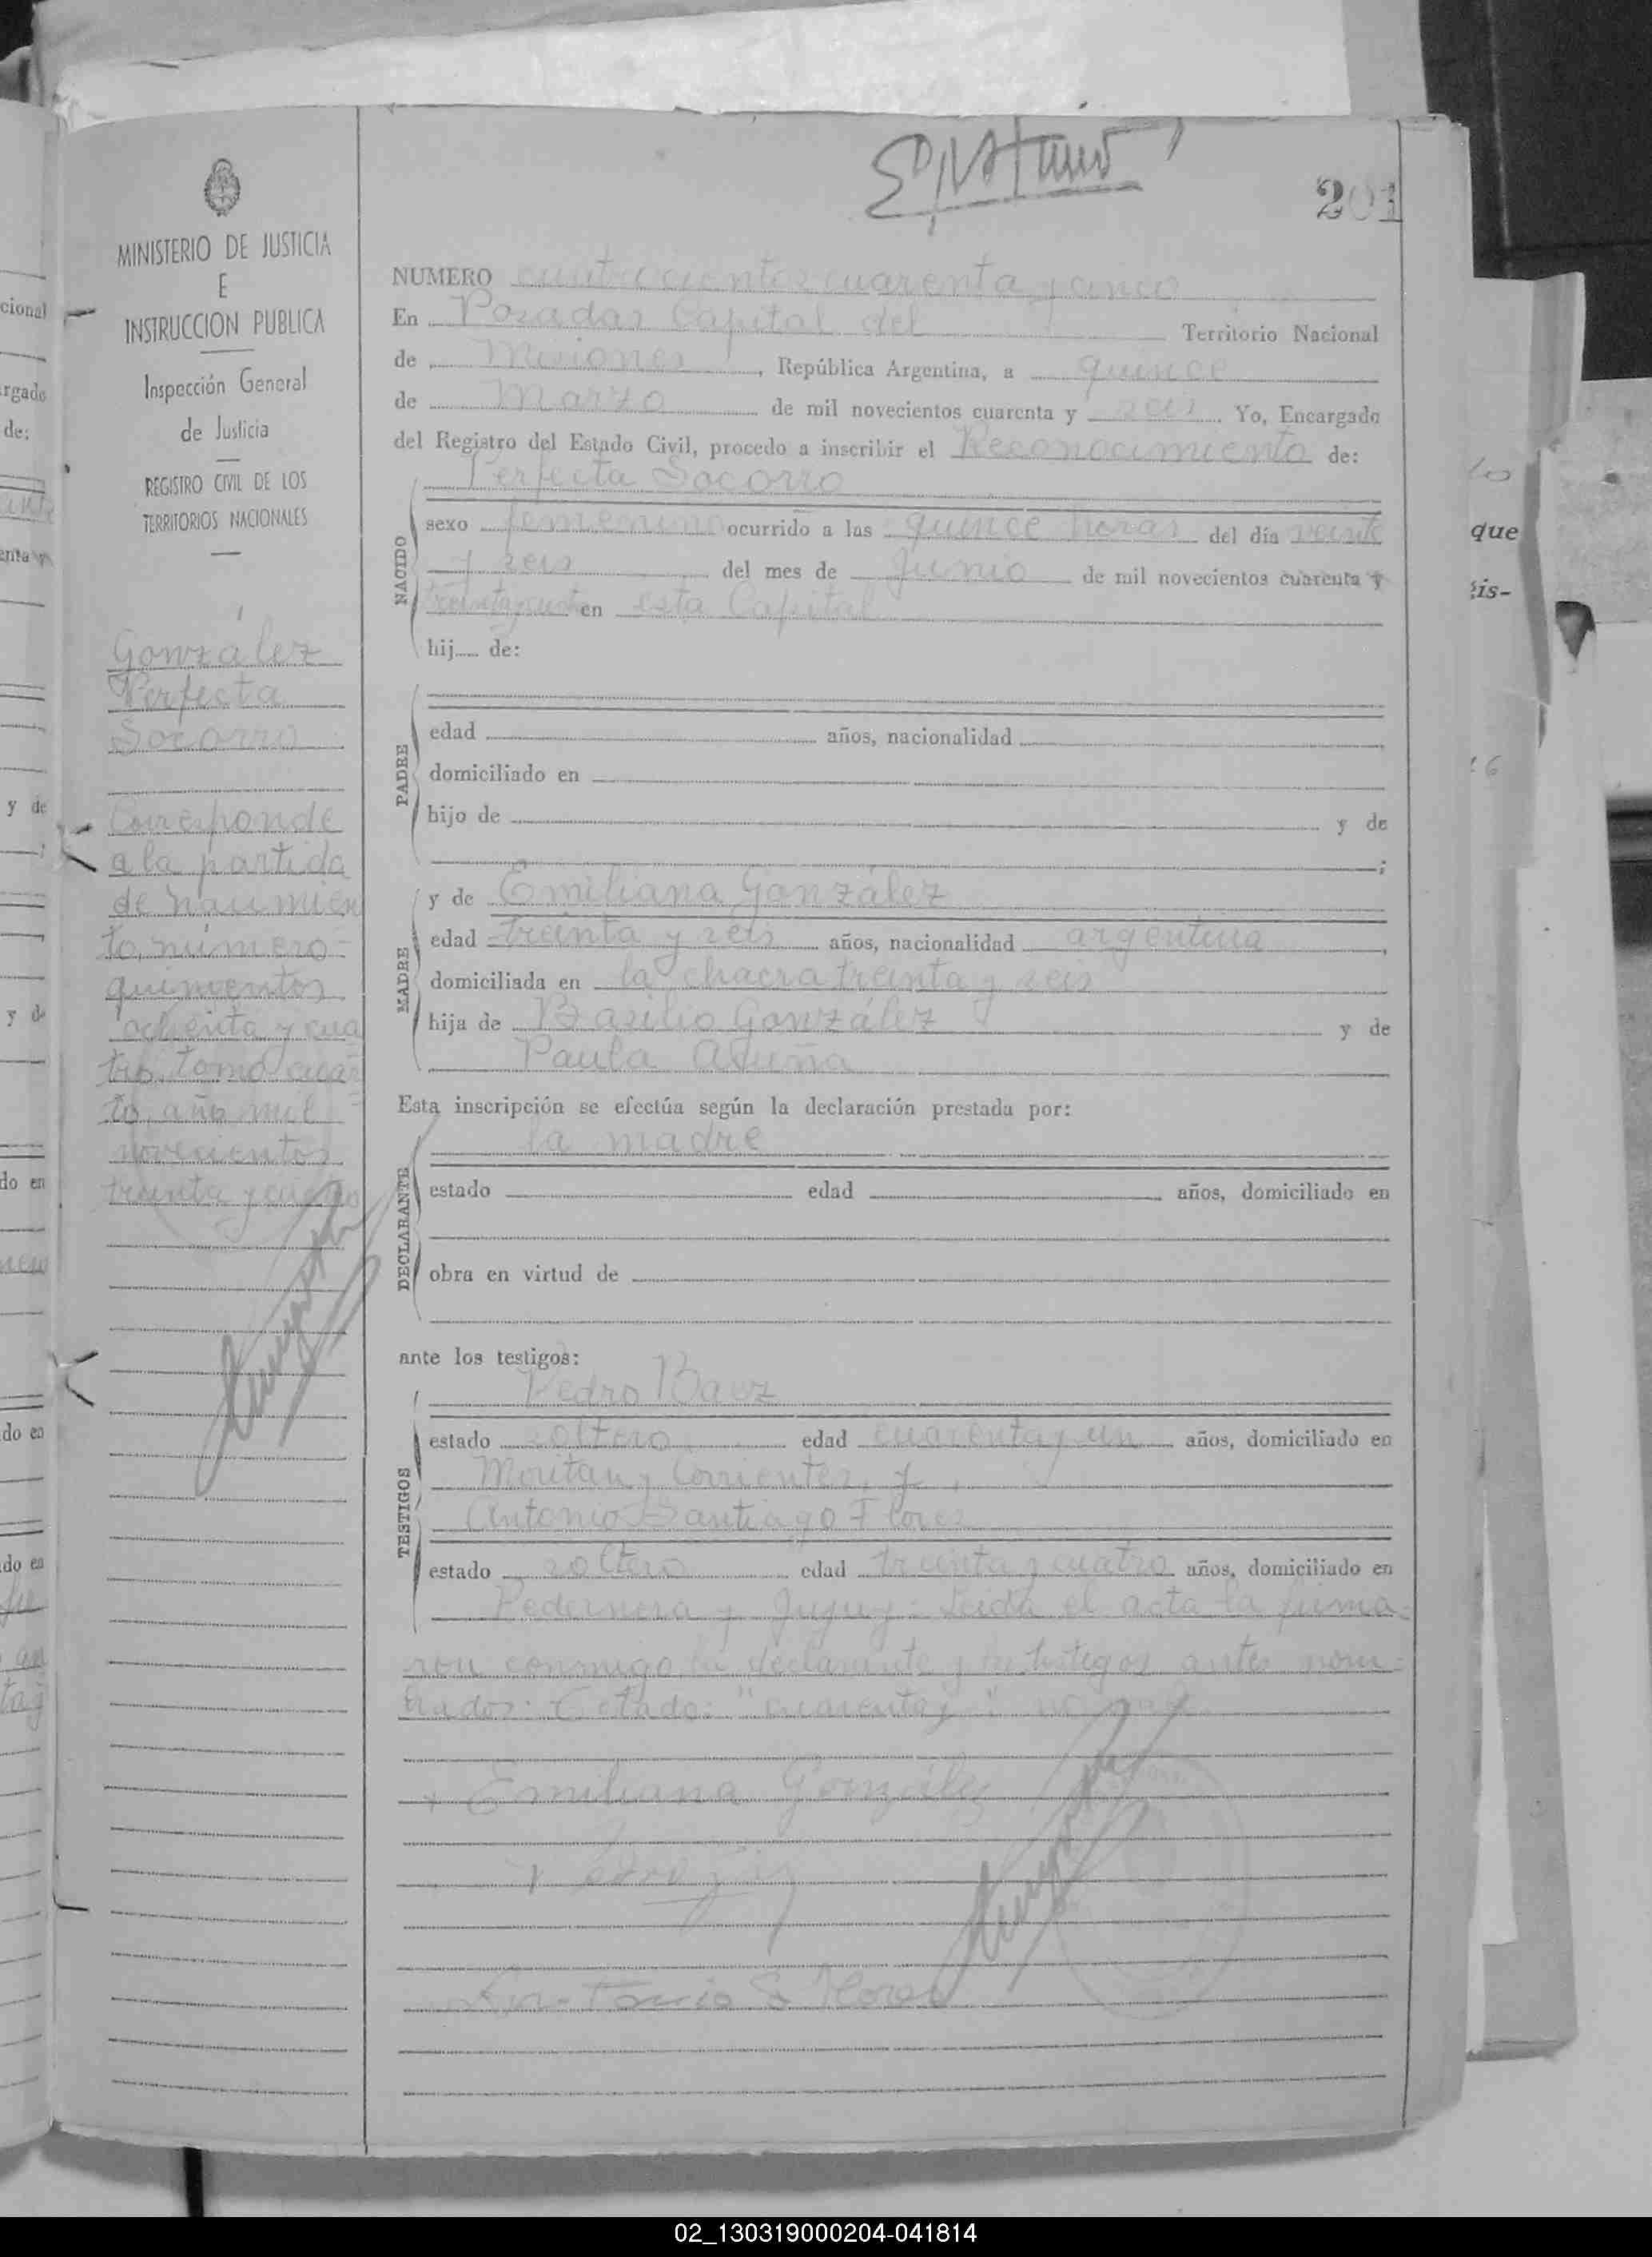 201
MINISTERIO DE JUSTICIA
E
INSTRUCCION PUBLICA
Inspección General
de Justicia
REGISTRO CIVIL DE LOS
TERRITORIOS NACIONALES
González
Perfecta
Socorro
Corresponde
a la partida
de nacimien
to, número
quinientos
ochenta y cua
tro, tomo cuar
to, año mil
novecientos
treinta y cuatro
NUMERO cuatrocientos cuarenta y cinco
En Posadas Capital del Territorio Nacional
de Misiones, República Argentina, a quince
de Marzo de mil novecientos cuarenta y seis. Yo, Encargado
del Registro del Estado Civil, procedo a inscribir el Reconocimiento de:
Perfecta Socorro
NACIDO
sexo femenino ocurrido a las quince horas del día veinte
y seis del mes de Junio de mil novecientos cuarenta y
en esta Capital
hij.... de:
PADRE
edad años, nacionalidad
domiciliado en
hijo de y de
;
MADRE
y de Emiliana González
edad treinta y seis años, nacionalidad argentina,
domiciliada en la chacra treinta y seis
hija de Basilio González y de
Paula Acuña
Esta inscripción se efectúa según la declaración prestada por:
la madre
DECLARANTE
estado edad años, domiciliado en
obra en virtud de
ante los testigos:
Pedro Baez
TESTIGOS
estado soltero edad cuarenta y un años, domiciliado en
Moritan y Corrientes, y
Antonio Santiago Flores
estado soltero edad treinta y cuatro años, domiciliado en
Pedernera y Jujuy. Leida el acta la firma=
ron conmigo la declarante y los testigos antes nom=
brados. Testado: "cuarenta y" no vale
Emiliana González
Antonio S Flores
cional
rgado
de:
enta y
y de
y de
do en
do en
do en
que
is-
02_130319000204-041814